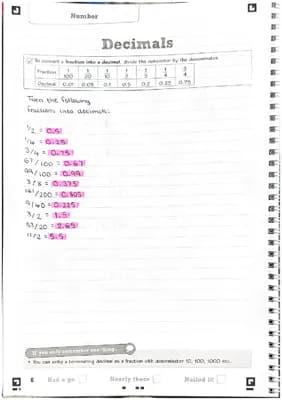 Number
Decimals
To convert a fraction into a decimal, divide the numerator by the denominator.
Fraction 1/100 1/20 1/10 1/5 1/4 3/4
Decimal 0.01 0.05 0.1 0.2 0.25 0.75
Turn the following
fractions into decimals:
1/2 = 0.5
1/4 = 0.25
3/4 = 0.75
67/100 = 0.67
99/100 = 0.99
3/8 = 0.375
/200 = 0.805
9/40 = 0.225
3/2 = 1.5
53/20 = 2.65
11/2 = 5.5
If you only remember one thing...
• You can write a terminating decimal as a fraction with denominator 10, 100, 1000 etc.
6 Had a go Nearly there Nailed it!